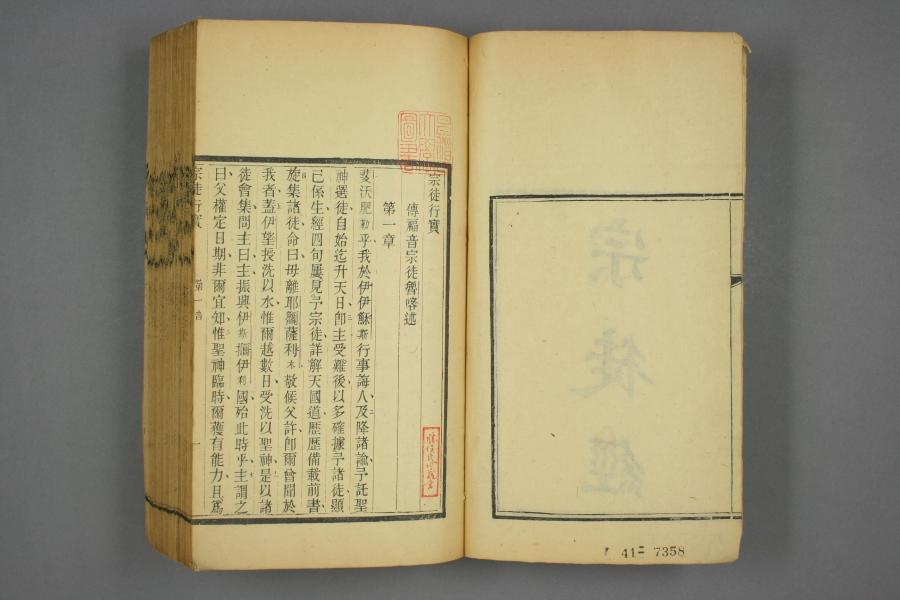 宗徒行實
傳福音宗徒魯喀述
第一章
斐沃肥勒乎我於伊伊穌斯行事誨人及降諸諭予託聖
神選徒自始迄升天日即主受難後以多確據予諸徒顯
己係生經四旬屢見予宗徒詳解天國道歷歷備載前書
旋集諸徒命曰毋離耶嚻薩利木敬候父許即爾曾聞於
我者蓋伊望授洗以水惟爾越數日受洗以聖神是以諸
徒會集問主曰主振興伊斯擩伊利國殆此時乎主謂之
曰父權定日期非爾宜知惟聖神臨時爾獲有能力且爲
宗徒行實
第一章
一
宗徒經
41-7358